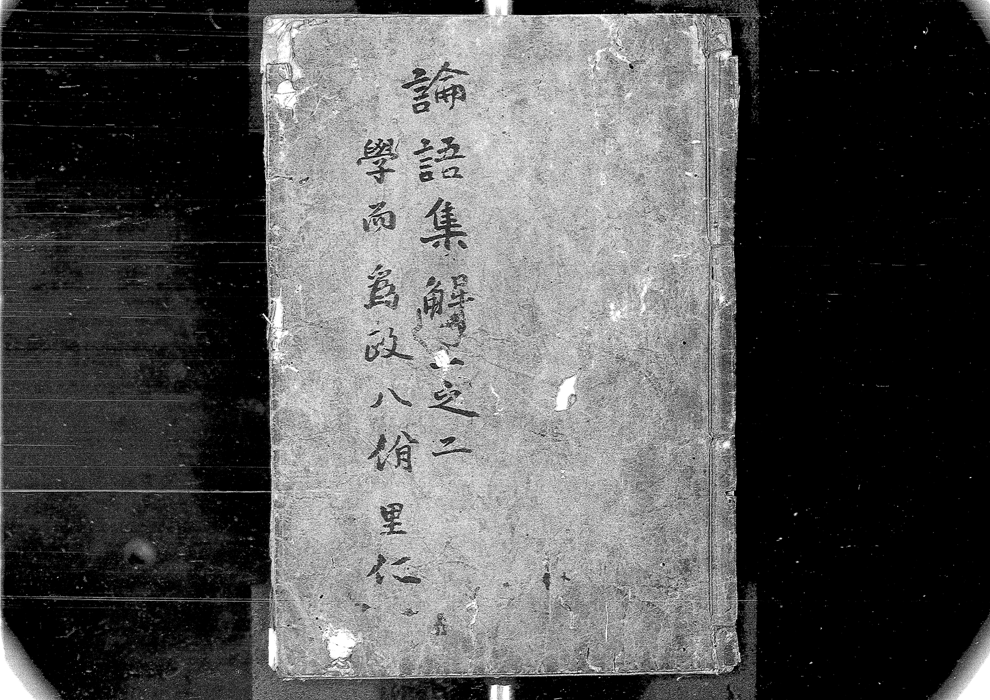 論語集解一之二
學而爲政八佾里仁